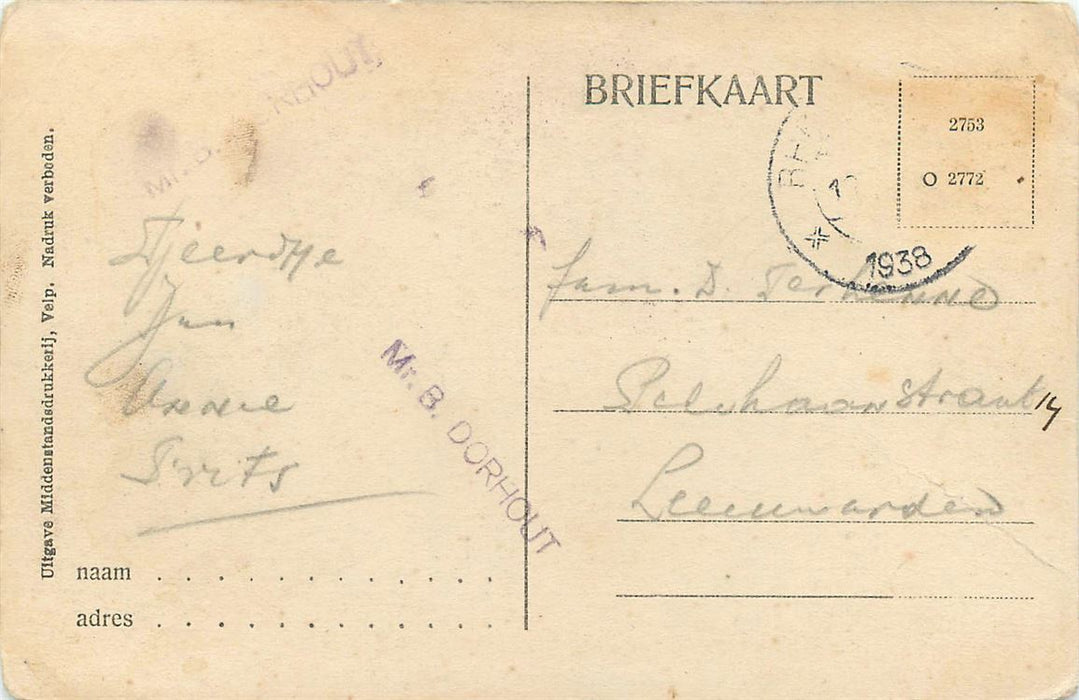 Uitgave Middenstandsdrukkerij, Velp. Nadruk verboden.
Mr. B.
RHOUT
Jan
Annie
Frits
Mr. B. DORHOUT
naam
adres
BRIEFKAART
2753
O 2772
1938
fam. D. Terhenne
straat 14
Leeuwarden